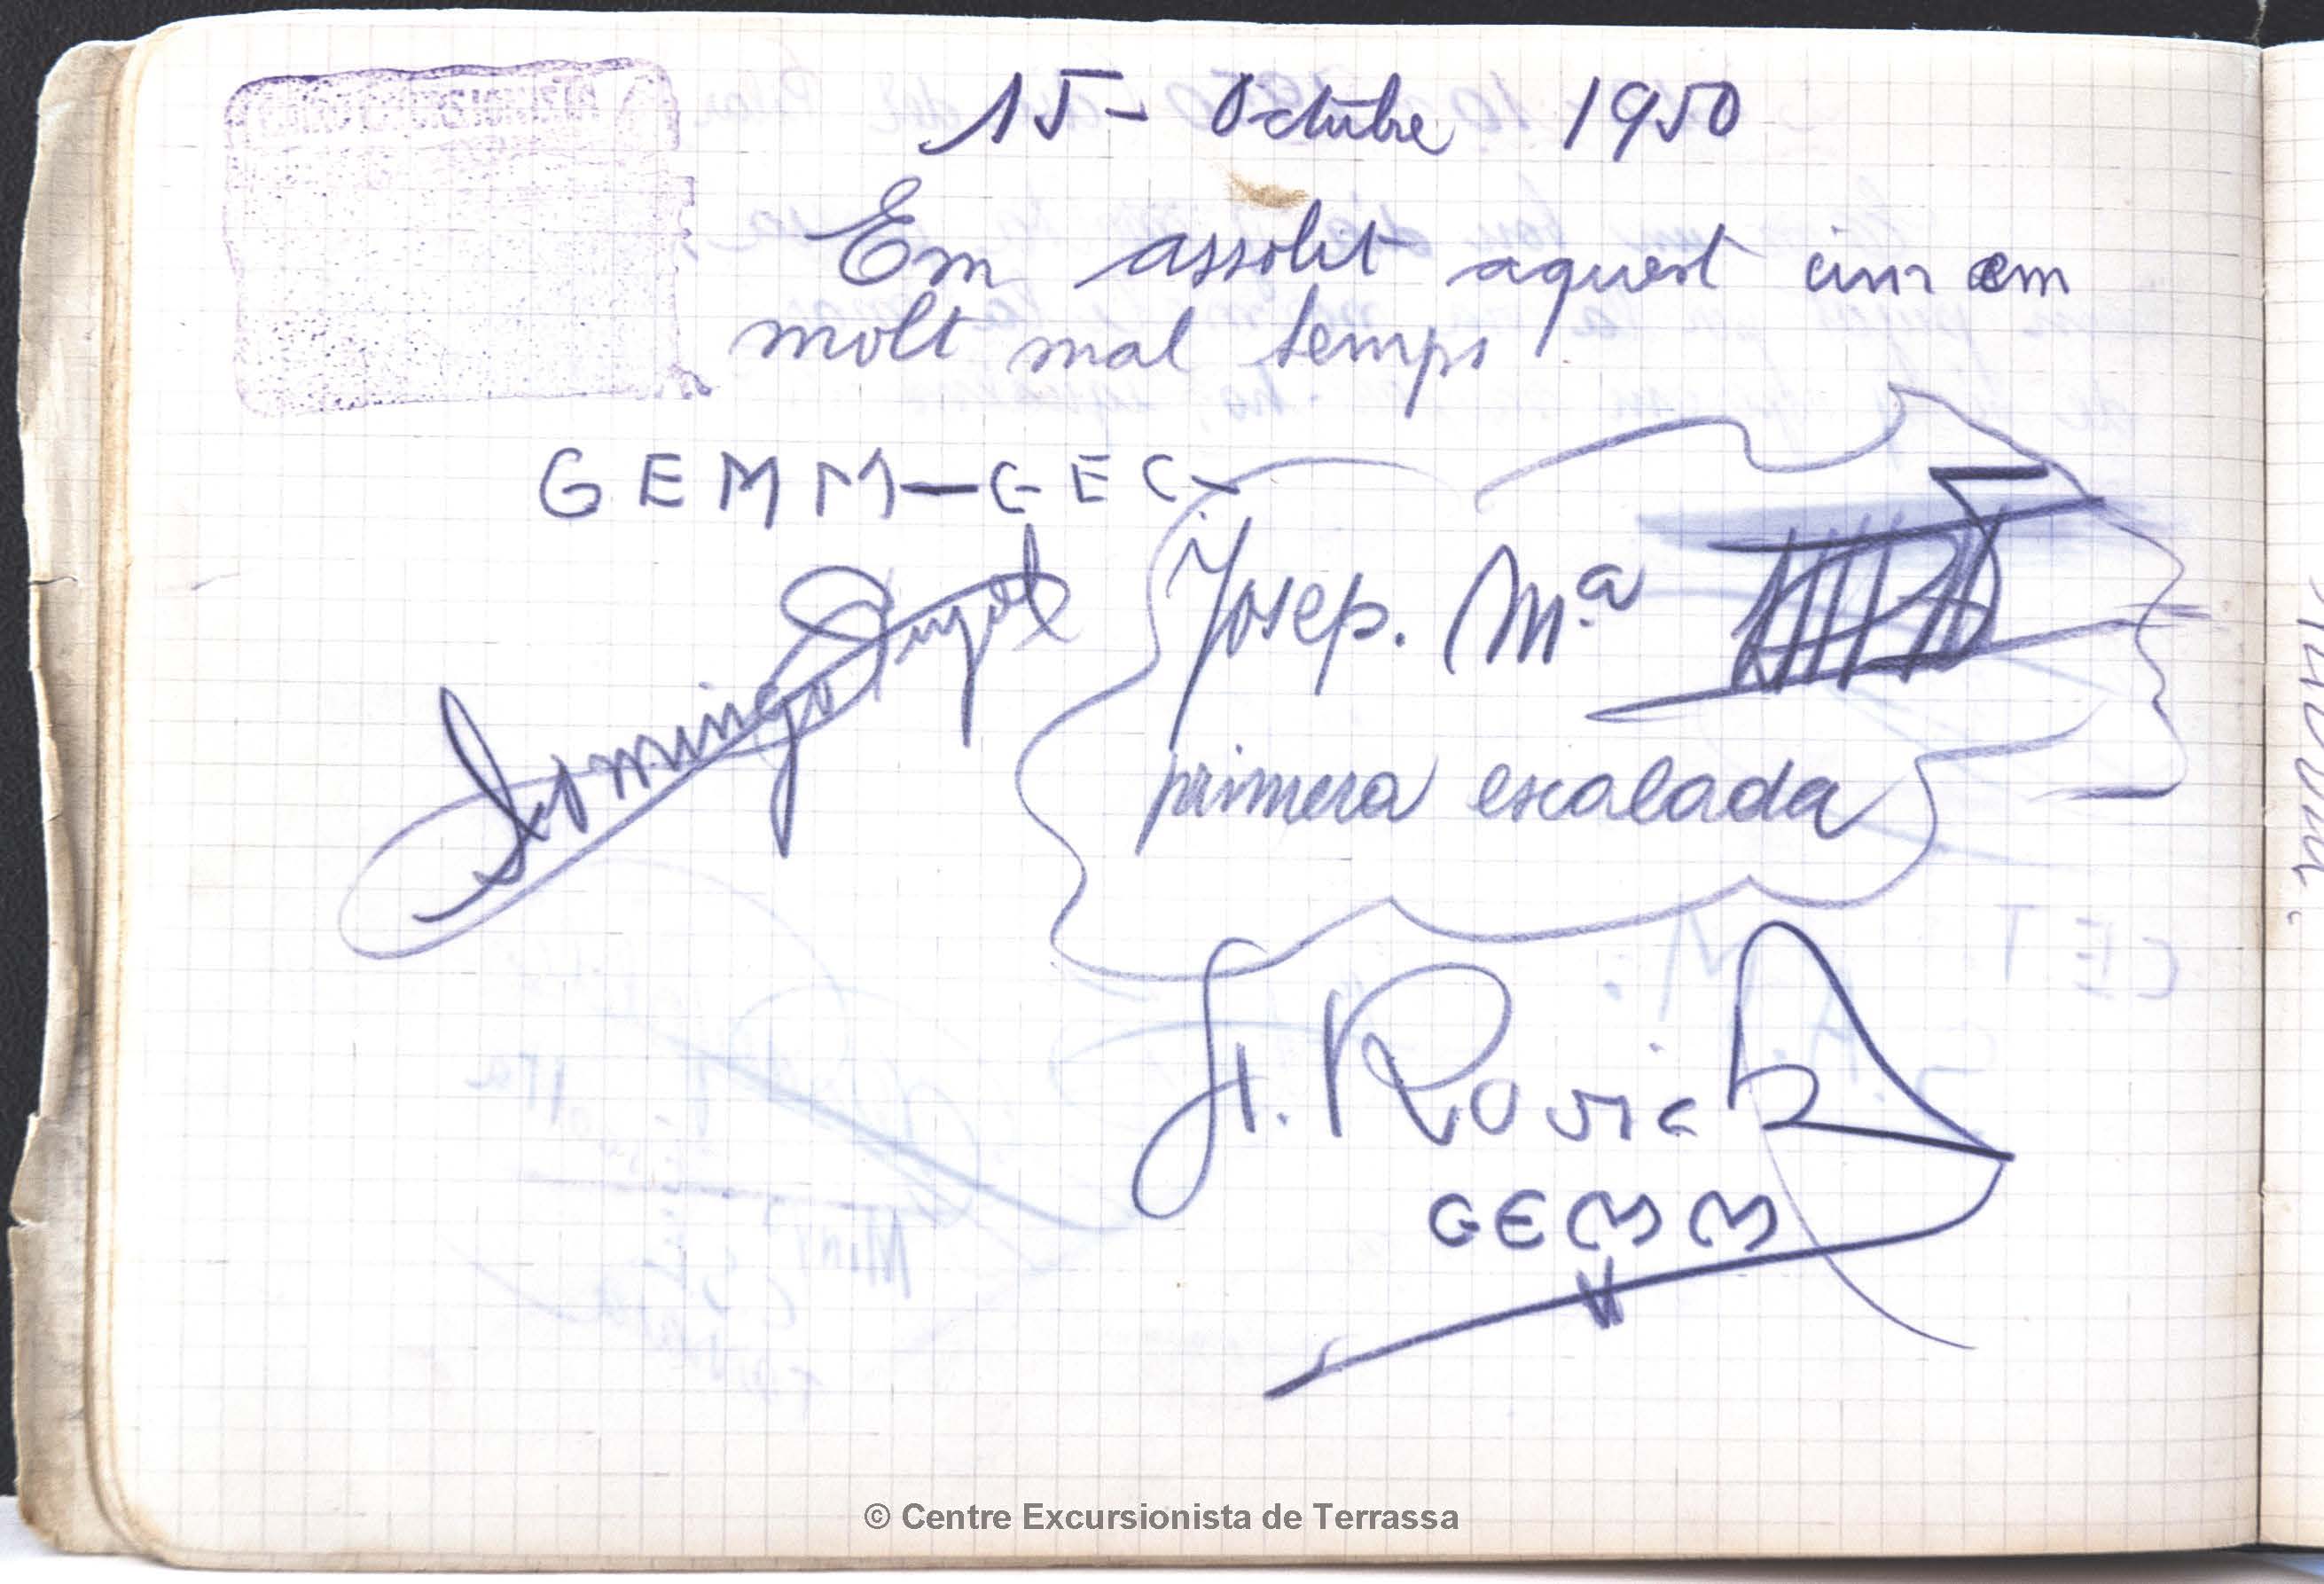 15 - Octubre 1950
Em assolit aquest cim em
molt mal temps
GEMM-GEC
Domingo Pujol
Josep. Mª
primera escalada
GEMM
© Centre Excursionista de Terrassa